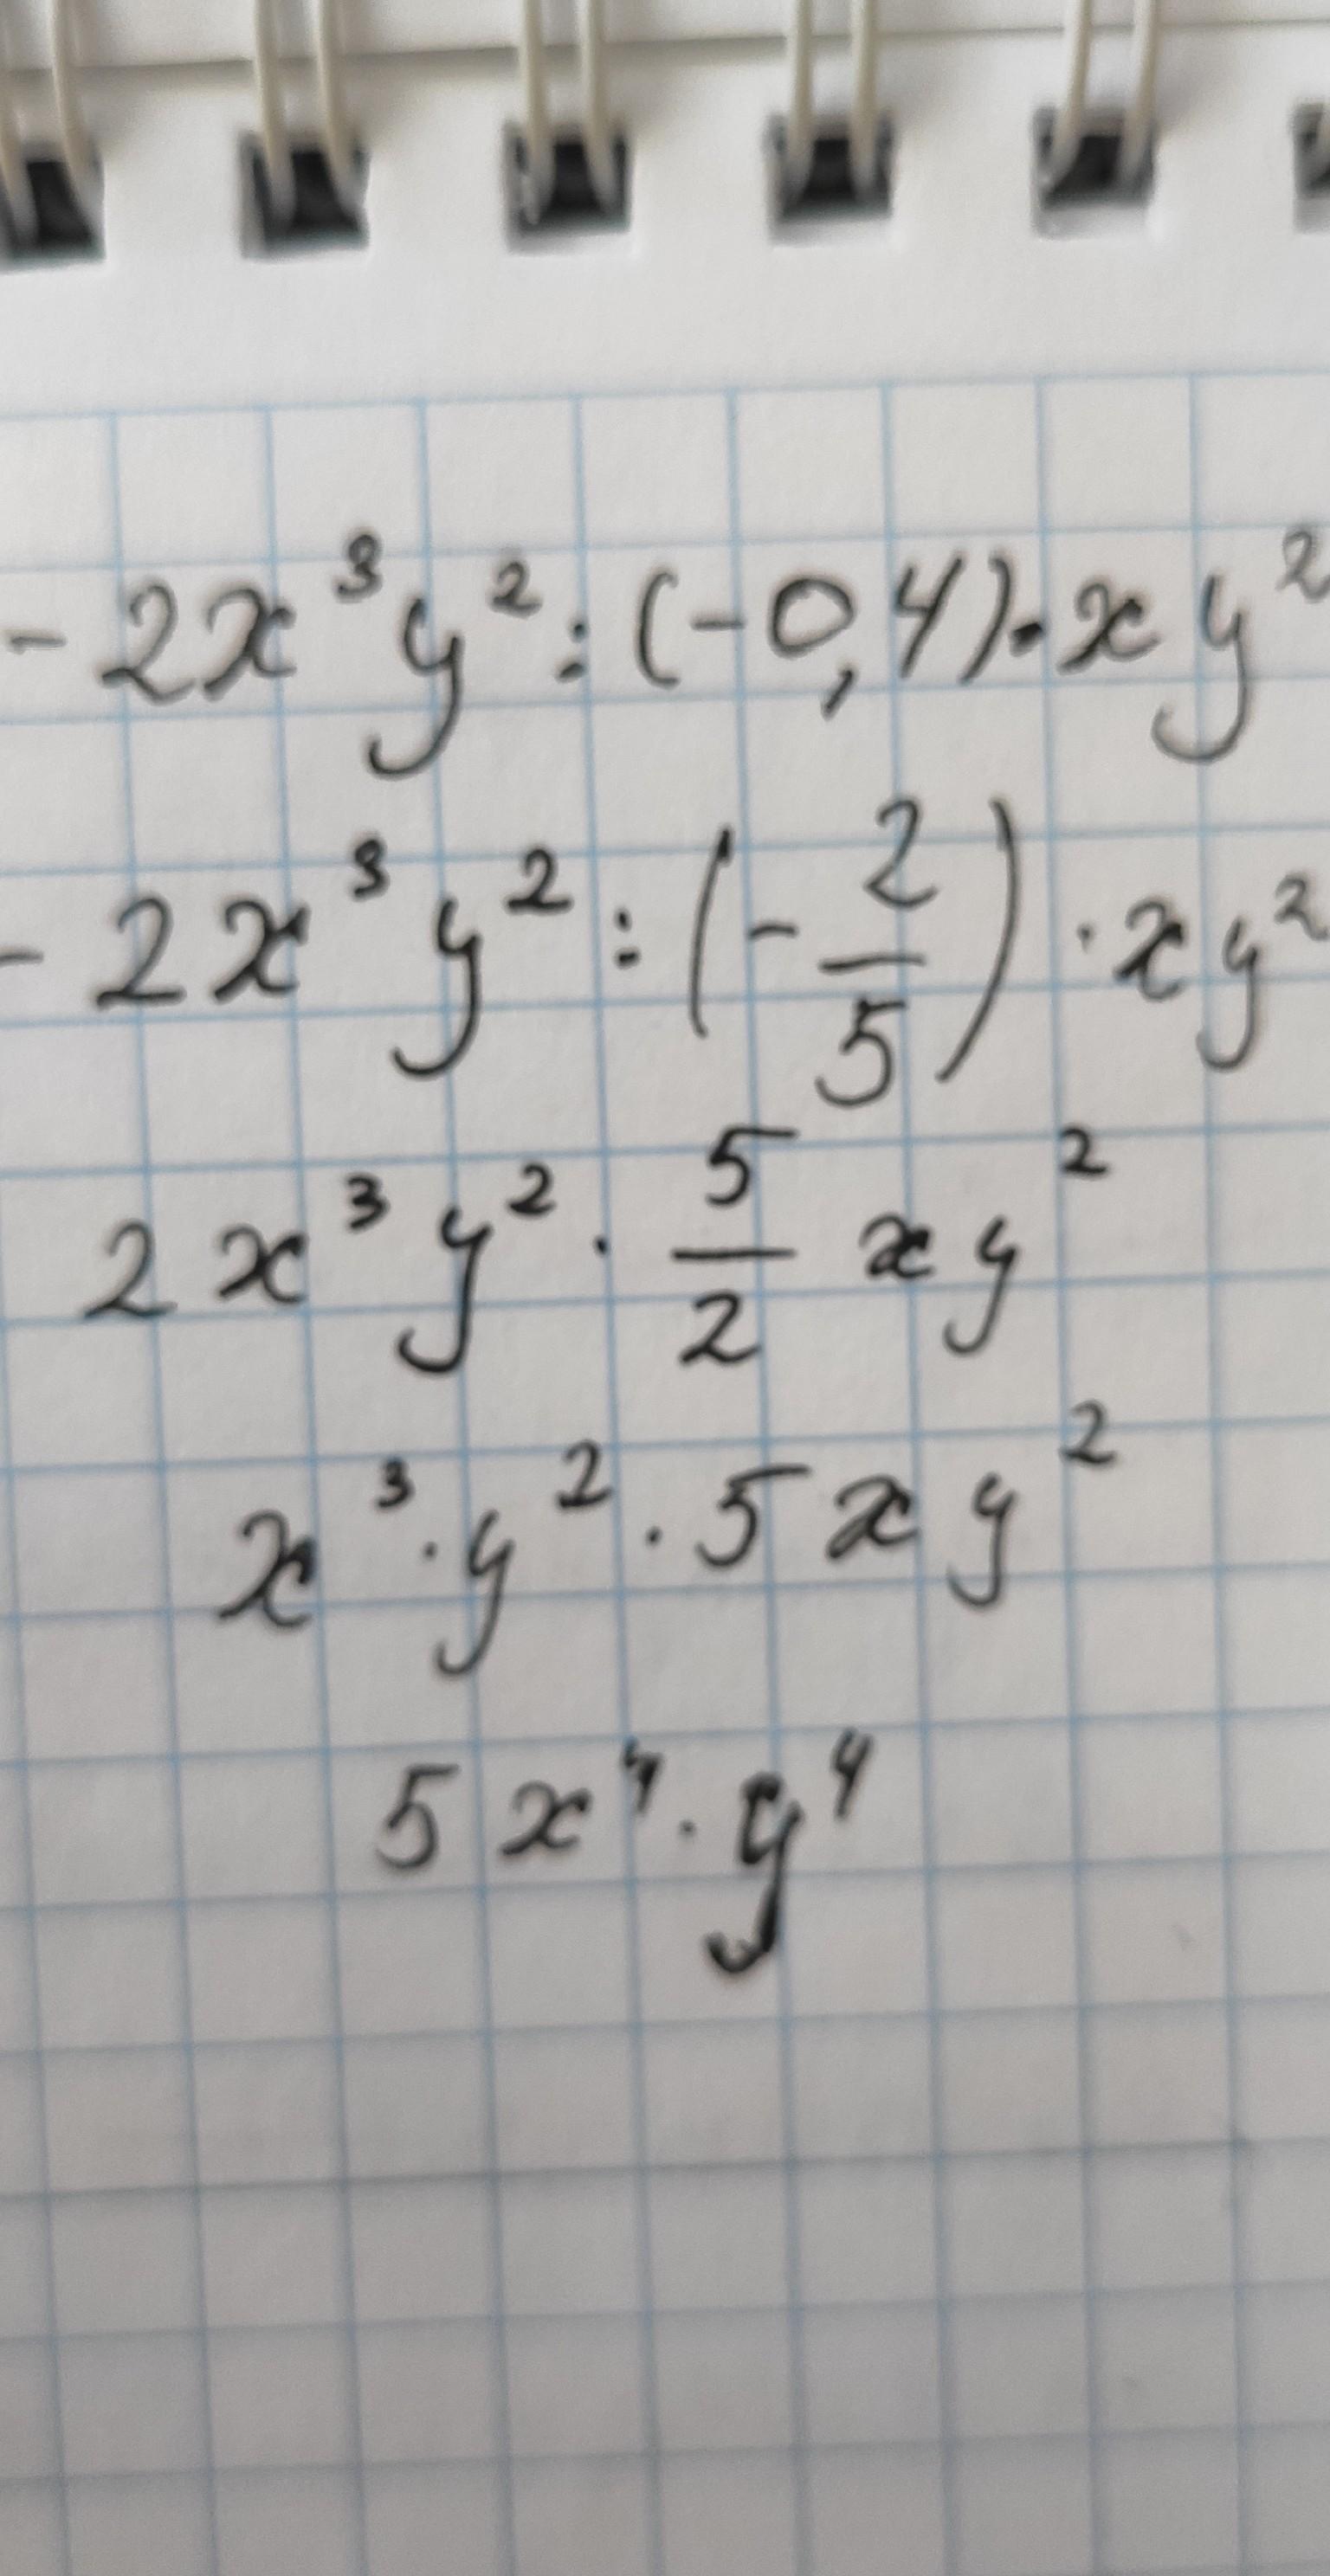 - 2x³y² : (-0,4) · xy²
- 2x³y² : (-2/5) · xy²
2x³y² · 5/2 xy²
x³ · y² · 5xy²
5x⁴ · y⁴